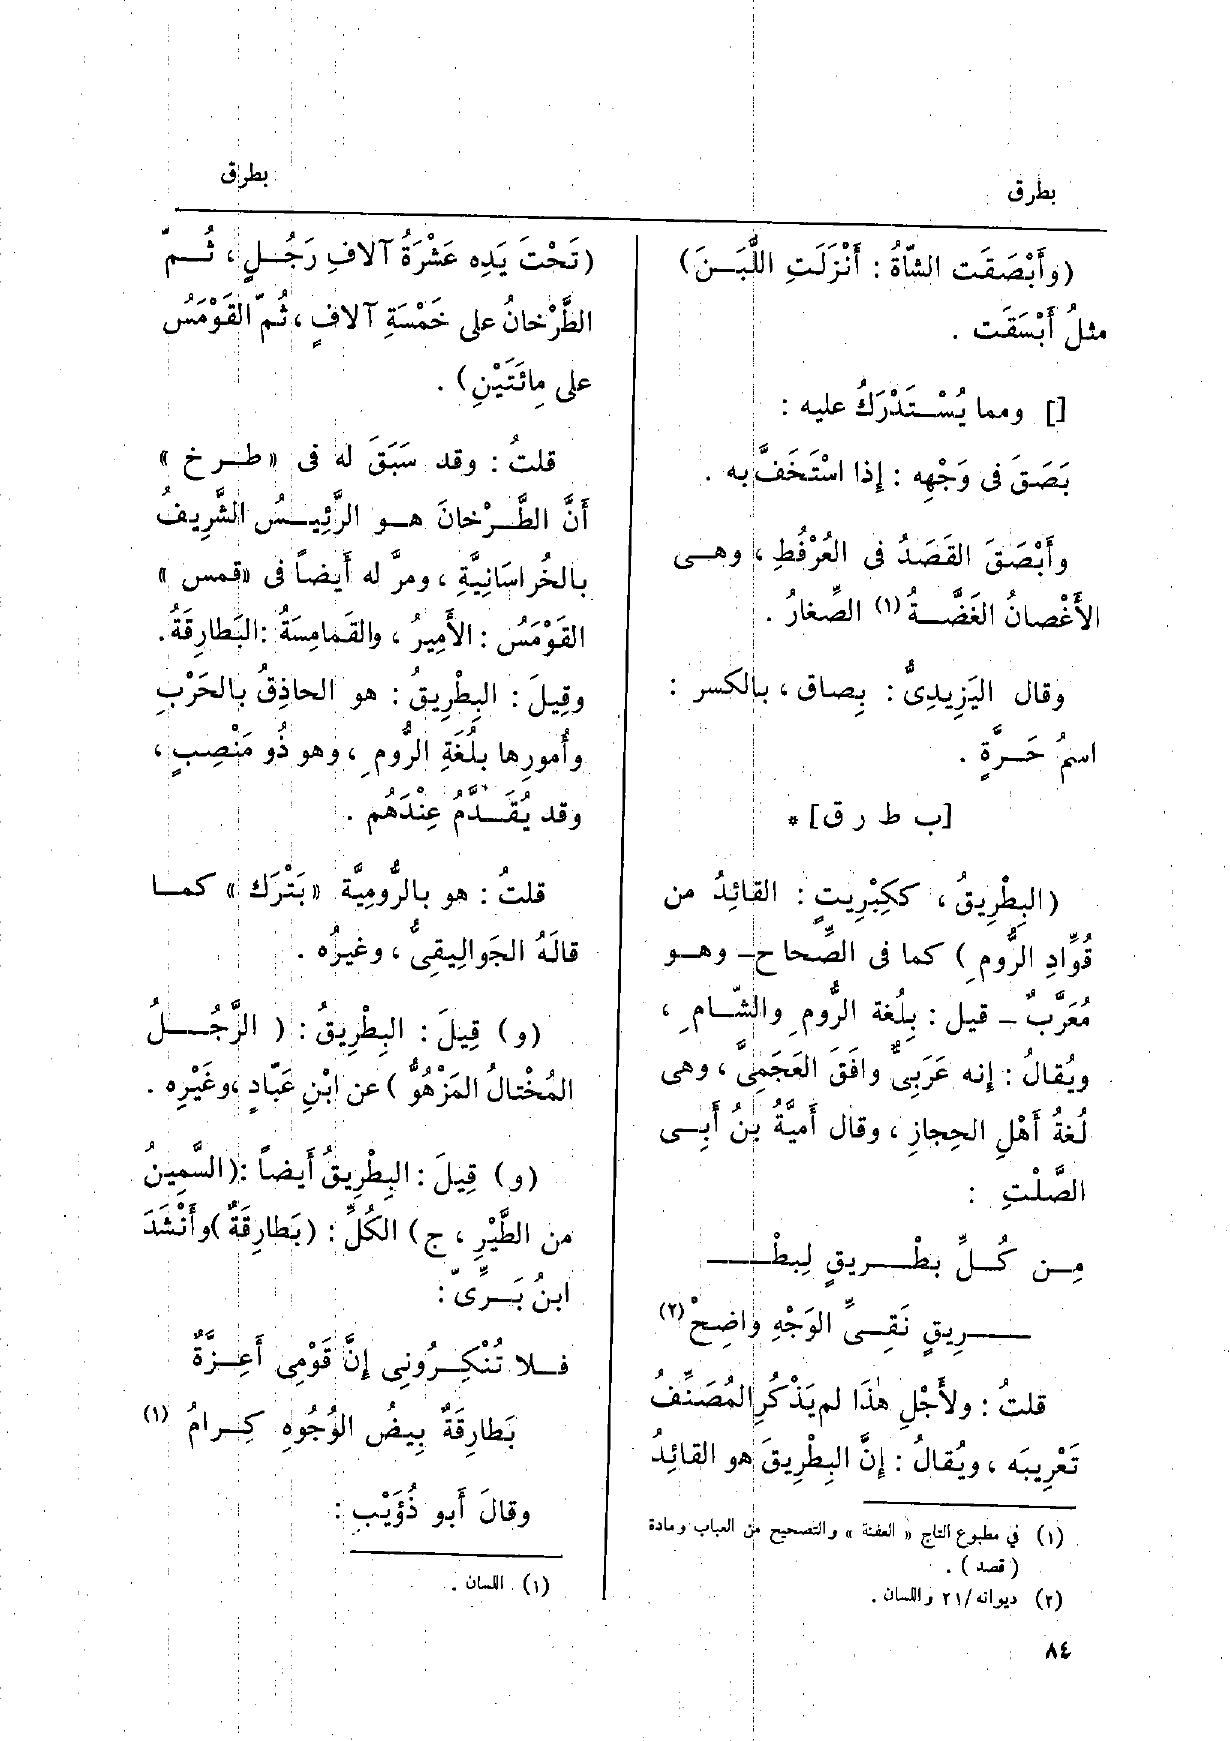 بطرق
بطرق
(وأَبْصَقَت الشّاةُ : أَنْزَلَتِ اللَّبَــنَ)
مثلُ أَبْسَقَت .
[] ومما يُسْــتَدْرَكُ عليه :
بَصَقَ فى وَجْهِه : إذا اسْتَخَفَّ به .
وأَبْصَقَ القَصَدُ فى العُرْفُطِ ، وهــى
الأَغْصانُ الغَضَّــةُ (١) الصِّغارُ .
وقال اليَزِيدِىُّ : بِصاق ، بالكسر :
اسمُ حَــرَّةٍ .
[ب ط ر ق] *
(البِطْرِيقُ ، ككِبْرِيتٍ : القائِدُ من
قُوّادِ الرُّومِ ) كما فى الصِّحاح- وهــو
مُعَرَّبٌ - قيل : بِلُغة الرُّومِ والشّــامِ ،
ويُقالُ : إنه عَرَبِىٌّ وافَقَ العَجَمِىَّ ، وهى
لُغةُ أَهْلِ الحِجازِ ، وقال أُمَيَّةُ بنُ أَبِــى
الصَّلْتِ :
مِــن كُــلِّ بِطْــرِيقٍ لِبِطْـــ
ــــرِيقٍ نَقِــىِّ الوَجْهِ واضِحْ (٢)
قلتُ : ولأَجْلِ هٰذَا لم يَذْكُرِ المُصَنِّفُ
تَعْرِيبَه ، ويُقالُ : إنَّ البِطْرِيقَ هو القائِدُ
(١) في مطبوع التاج « العفنة » والتصحيح من العباب ومادة
( قصد ) .
(٢) ديوانه /٢١ واللسان .
٨٤
(تَحْتَ يَدِه عَشْرَةُ آلافِ رَجُــلٍ ، ثُــمّ
الطَّرْخانُ على خَمْسَةِ آلافٍ ، ثُمّ القَوْمَسُ
على مِائَتَيْنِ) .
قلتُ : وقد سَبَقَ له فى « طــر خ »
أَنَّ الطَّــرْخانَ هــو الرَّئِيــسُ الشَّرِيفُ
بالخُراسَانِيَّةِ ، ومرَّ له أَيضاً فى «قمس »
القَوْمَسُ : الأَمِيرُ ، والقَمامِسَةُ : البَطارِقَةُ .
وقِيلَ : البِطْرِيقُ : هو الحاذِقُ بالحَرْبِ
وأُمورِها بلُغَةِ الرُّومِ ، وهو ذُو مَنْصِبٍ ،
وقد يُقَــدَّمُ عِنْدَهُم .
قلتُ : هو بالرُّومِيَّة «بَتْرَك » كمــا
قالَهُ الجَوالِيقِىُّ ، وغيرُه .
(و) قِيلَ : البِطْرِيقُ : ( الرَّجُــلُ
المُخْتالُ المَزْهُوُّ ) عن ابْنِ عَبّادٍ ، وغَيْرِه .
(و) قِيلَ : البِطْرِيقُ أَيضاً : (السَّمِينُ
من الطَّيْرِ ، ج) الكُلِّ : (بَطارِقَةٌ )وأَنْشَدَ
ابنُ بَــرِّىّ :
فــلا تُنْكِــرُونِى إنَّ قَوْمِى أَعِــزَّةٌ
بَطارِقَةٌ بِيضُ الوُجُوهِ كِــرامُ (١)
وقالَ أَبو ذُؤَيْبٍ :
(١) اللسان .